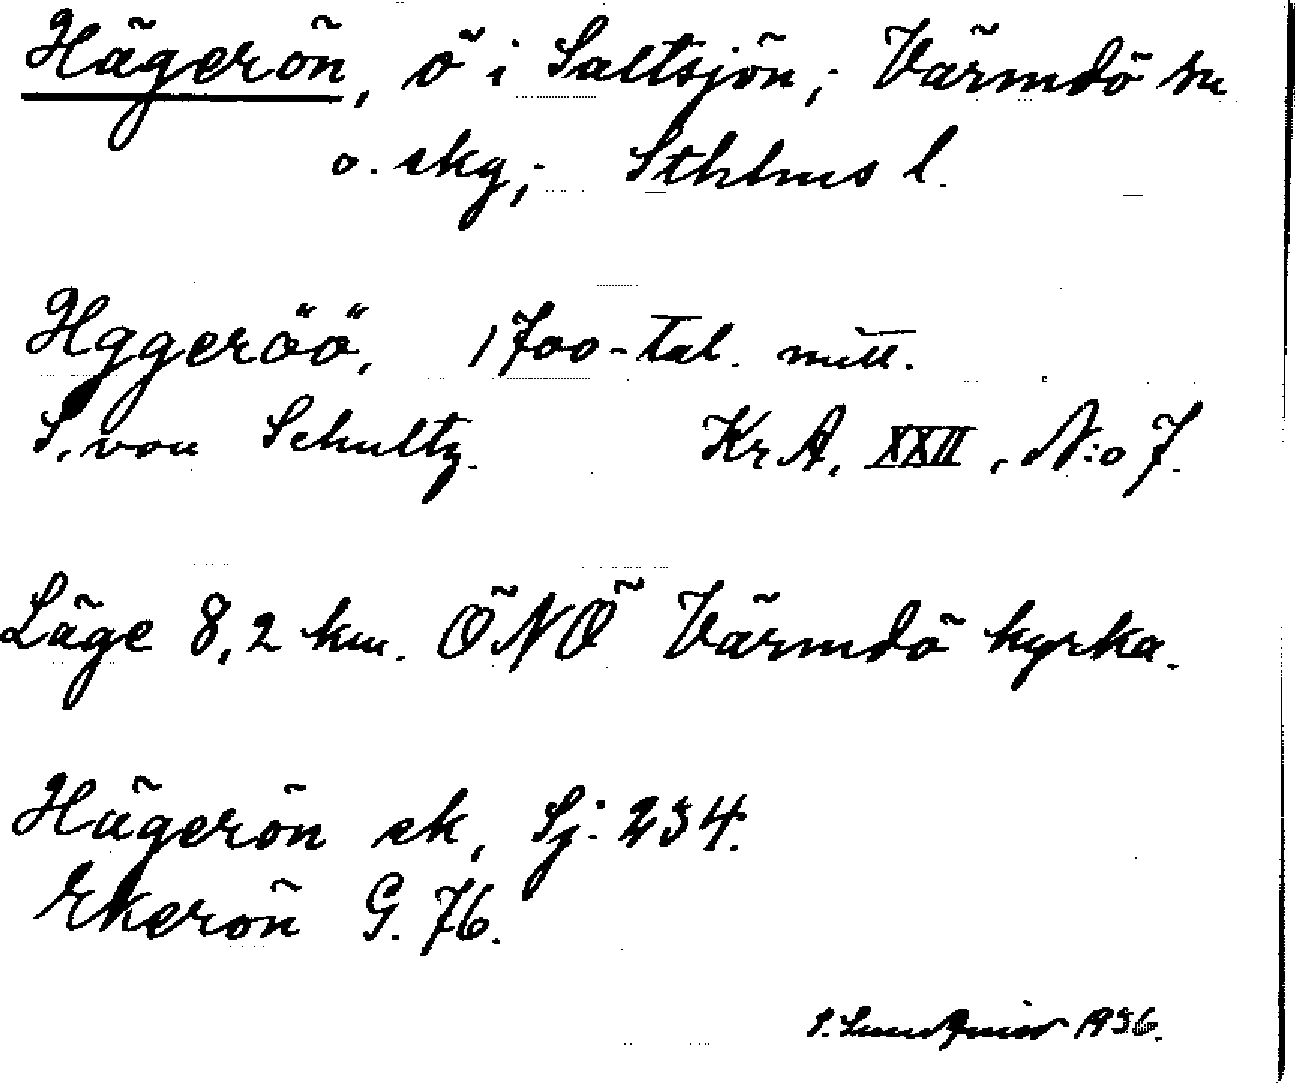 Hägerön, ö i Saltsjön; Värmdö sn
o. skg; Sthlms l.
Hggeröö, 1700-tal. mitt.
S. von Schultz. Kr A, XXII, N:o 7.
Läge 8,2 km. ÖNÖ Värmdö kyrka.
Hägerön ek, Sj: 234.
Ekerön G. 76.
S. 1936.